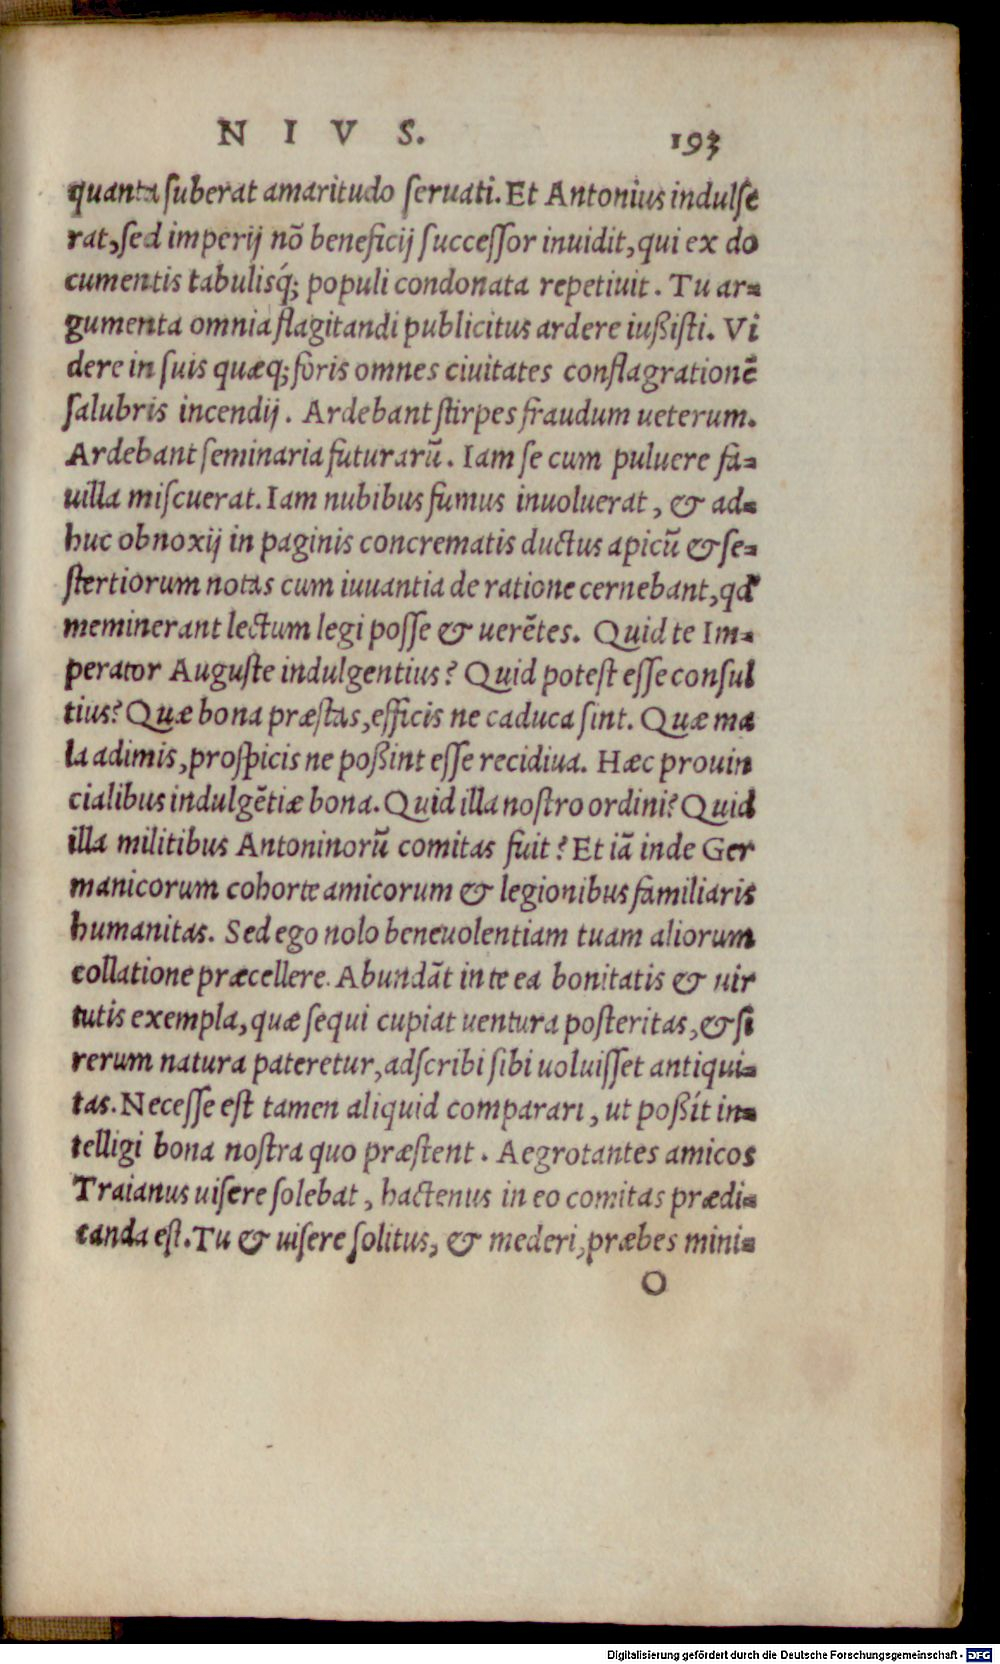 N I V S. 193
quanta suberat amaritudo seruati. Et Antonius indulse
rat, sed imperij nō beneficij successor inuidit, qui ex do
cumentis tabulisq́; populi condonata repetiuit. Tu ar-
gumenta omnia flagitandi publicitus ardere iußisti. Vi
dere in suis quæq; foris omnes ciuitates conflagrationē
salubris incendij. Ardebant stirpes fraudum ueterum.
Ardebant seminaria futurarū. Iam se cum puluere fa-
uilla miscuerat. Iam nubibus fumus inuoluerat, & ad-
huc obnoxij in paginis concrematis ductus apicū & se-
stertiorum notas cum iuuantia de ratione cernebant, qd
meminerant lectum legi posse & uerētes. Quid te Im-
perator Auguste indulgentius? Quid potest esse consul
tius? Quæ bona præstas, efficis ne caduca sint. Quæ ma
la adimis, prospicis ne poßint esse recidiua. Hæc prouin
cialibus indulgētiæ bona. Quid illa nostro ordini? Quid
illa militibus Antoninorū comitas fuit? Et iā inde Ger
manicorum cohorte amicorum & legionibus familiaris
humanitas. Sed ego nolo beneuolentiam tuam aliorum
collatione præcellere. Abundāt in te ea bonitatis & uir
tutis exempla, quæ sequi cupiat uentura posteritas, & si
rerum natura pateretur, adscribi sibi uoluisset antiqui-
tas. Necesse est tamen aliquid comparari, ut poßit in-
telligi bona nostra quo præstent. Aegrotantes amicos
Traianus uisere solebat, hactenus in eo comitas prædi-
canda est. Tu & uisere solitus, & mederi, præbes mini-
O
Digitalisierung gefördert durch die Deutsche Forschungsgemeinschaft - DFG